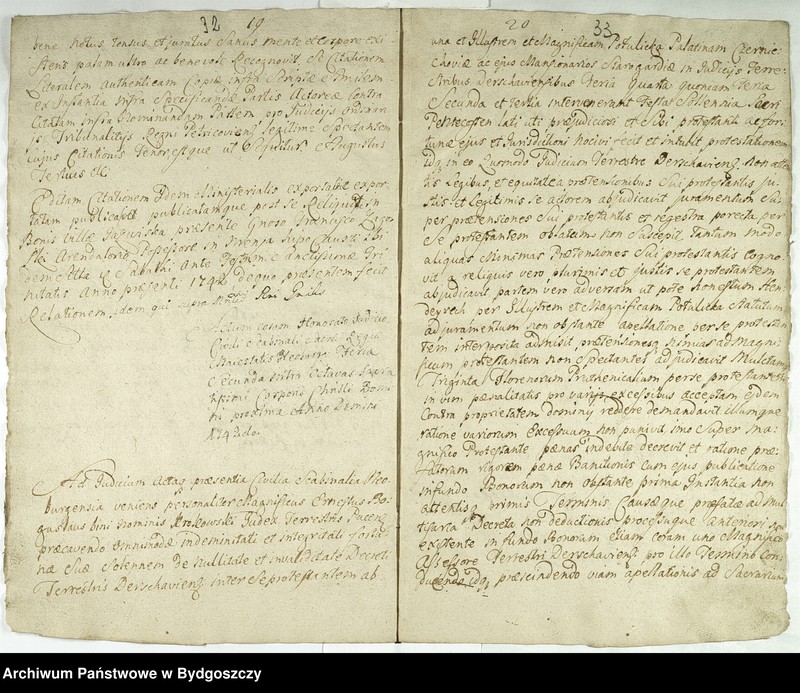 32 19
bene notus, sensus et juratus Sanus mente et corpore exi
stens palam ultro ac benevole Recognovit. Se Citationem
literalem Authenticam Copiæ infra Scriptæ Similem
ex Instantia infra Specificandæ Partis Actoreæ Contra
Citatam infra Nominandam Partem pro Judicijs Ordinar
ijs Tribunalitijs Regni Petricovien. legitime Spectantem
Cujus Citationis Tenor estque ut Sequitur Augustus
Tertius etc.
Editam Citationem Idem Ministerialis
publicasse publicatamque post se Reliquisse in
Bonis Villæ præsente Gnoso Francisco
Arendatorio Possessore in Mensa
die Sabathi Ante Festum Sanctissimæ Tri
nitatis Anno præsenti 1742 de quo præsentem fecit
Relationem, idem qui supra
Actum coram Honorato Judicio
Civili Scabinali Sacræ Regiæ
Majestatis Feria
Secunda intra Octavas Sacra
tissimi Corporis Christi Domi
ni proxima Anno Domini
1742do.
Ad Judicium Actaq præsentia Civilia Scabinalia Neo
burgensia veniens personaliter Magnificus Ernestus Bo
guslaus bini nominis Judex Terrestris Pucen.
præcavendo omnimodæ indemnitati et integritati fortu
næ Suæ Solennem de Nullitate et invaliditate Decreti
Terrestris Derschaviens. inter Se protestantem ab
20 33
una et Illustrem et Magnificam Potulicka Palatinam Czernie
choviæ ac ejus Mansionarios Starogardiæ in Judicijs Terre
stribus Derschaviensibus Feria Quarta quoniam Feria
Secunda et Tertia intervenerunt Festa Solennia Sacri
Pentecostes lati, uti præjudiciosi et Sibi protestanti ac for
tunæ ejus et Jurisdictioni nocivi fecit et intulit protestationem
Idq in eo Quomodo Judicium Terrestre Derschaviens. non
tis Legibus, et equitate a prætensionibus Sui protestantis Ju
stis et Legitimis se actorem abjudicavit juramentum Su
per prætensiones Sui protestantis et regestra porecta per
Se protestantem oblatum non Suscepit, tantum modo
aliquas Minimas Prætensiones Sui protestantis cogno
vit a reliquis vero plurimis et justis se protestantem
abjudicavit, partem vero adversam ut pote Honestum Hen
deyrech per Illustrem et Magnificam Potulicka Statutum
ad juramentum non obstante apellatione per se protestan
tem interposita admisit, prætensionesq nimias ad Magni
ficum protestantem non Spectantes adjudicavit Mulctam
Triginta Florenorum Pruthenicalium per se protestantem
in vim pænalitatis pro varijs excessibus acceptam eidem
Contra proprietatem Dominij reddere demandavit illumque
ratione variorum Excessuum non punivit imo Super Ma
gnifico Protestante pænas indebite decrevit et ratione præ
latorum rigorem pænæ Banitionis cum ejus publicatione
in fundo Bonorum non obstante prima Instantia non
attentis primis Terminis Causæque præfatæ ad
Decreta non deductionis processuque anteriori
existente in fundo Bonorum etiam coram uno Magnifico
Assessore Terrestri Derschaviens. pro illo Termino Con
ducendo idq præscindendo viam apellationis ad Sacrarium
Archiwum Państwowe w Bydgoszczy